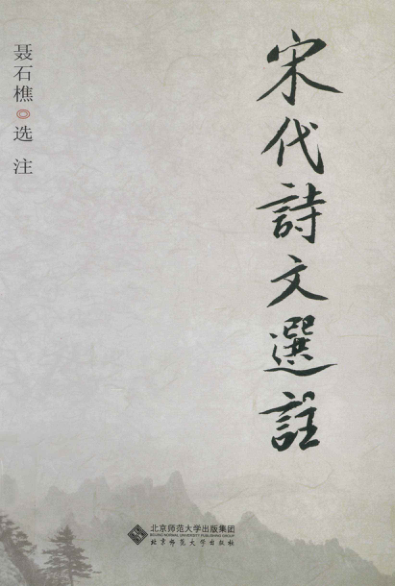 宋代詩文選註
聂石樵◎选 注
北京师范大学出版集团
BEIJING NORMAL UNIVERSITY PUBLISHING GROUP
北京师范大学出版社